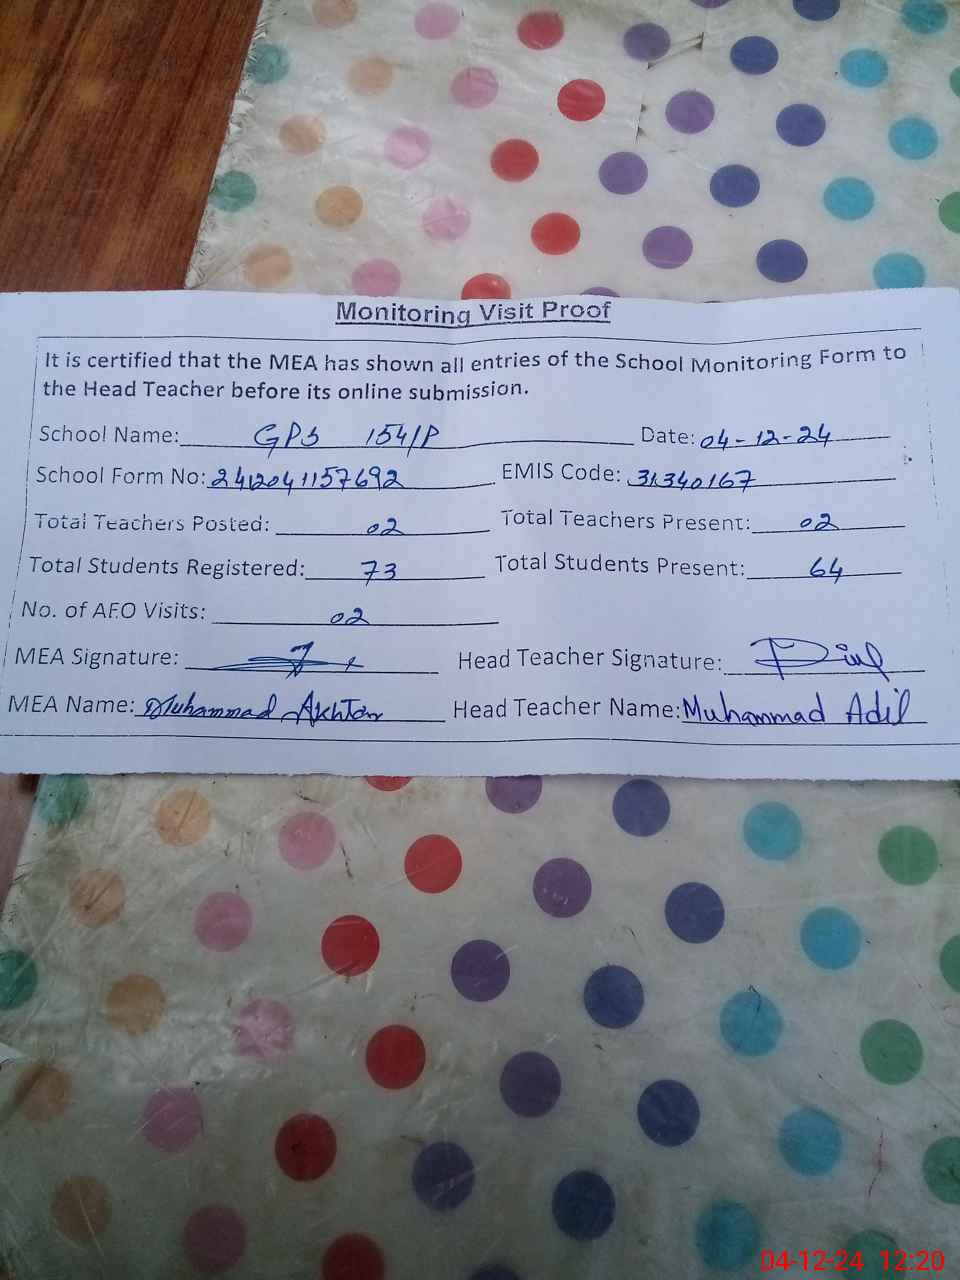 Monitoring Visit Proof
It is certified that the MEA has shown all entries of the School Monitoring Form to
the Head Teacher before its online submission.
School Name: GPS 154/P Date: 04-12-24
School Form No: 2412041157692 EMIS Code: 31340167
Total Teachers Posted: 02 Total Teachers Present: 02
Total Students Registered: 73 Total Students Present: 64
No. of AEO Visits: 02
MEA Signature: Head Teacher Signature:
MEA Name: Muhammad Akhtar Head Teacher Name: Muhammad Adil
04-12-24 12:20